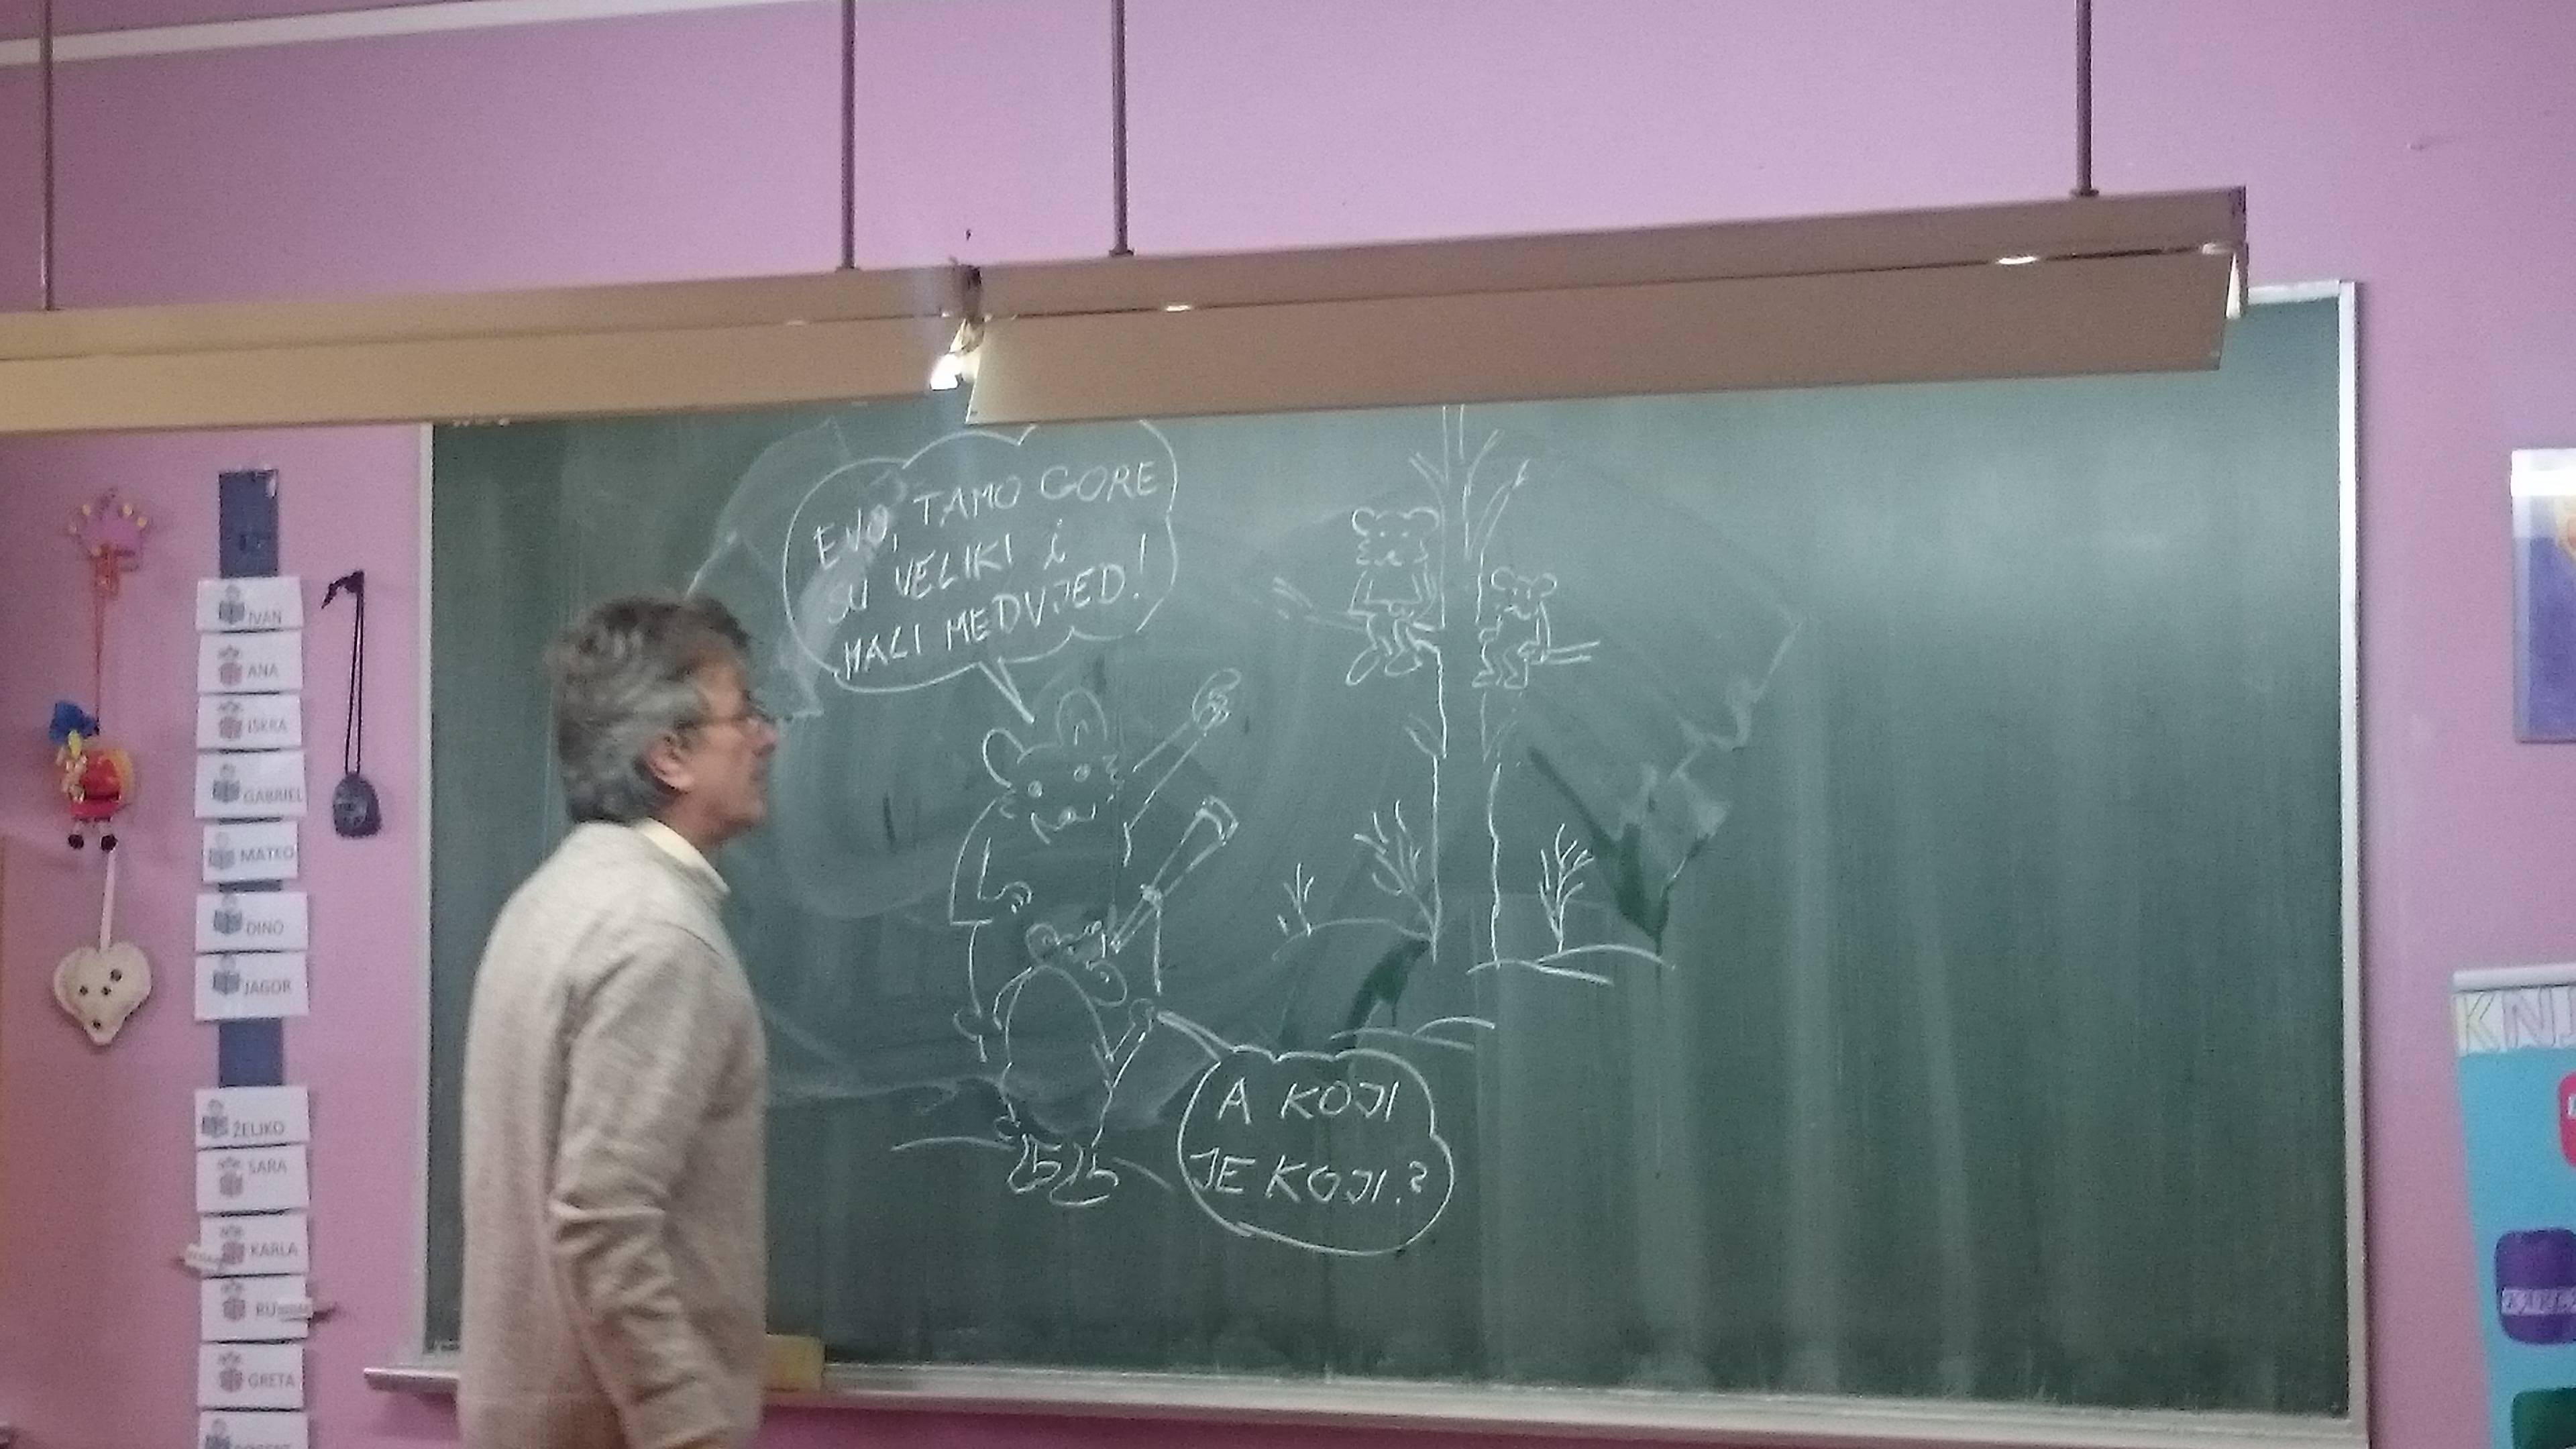 EVO, TAMO GORE
SU VELIKI i
MALI MEDVJED!
A KOJI
JE KOJI?
IVAN
ANA
ISKRA
GABRIEL
MATEO
DINO
JAGOR
ŽELJKO
SARA
KARLA
GRETA
KNJ